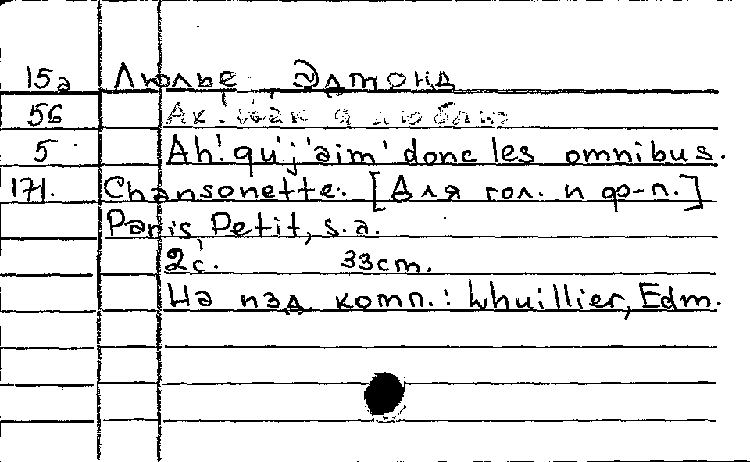 15а Люлье, Эдмонд
5б Ах! Как я люблю
5 Ah! qu'j'aim' donc les omnibus.
171. Chansonette. [Для гол. и ф-п.]
Paris, Petit, s.a.
2с. 33cm.
На изд комп.: Lhuillier, Edm.